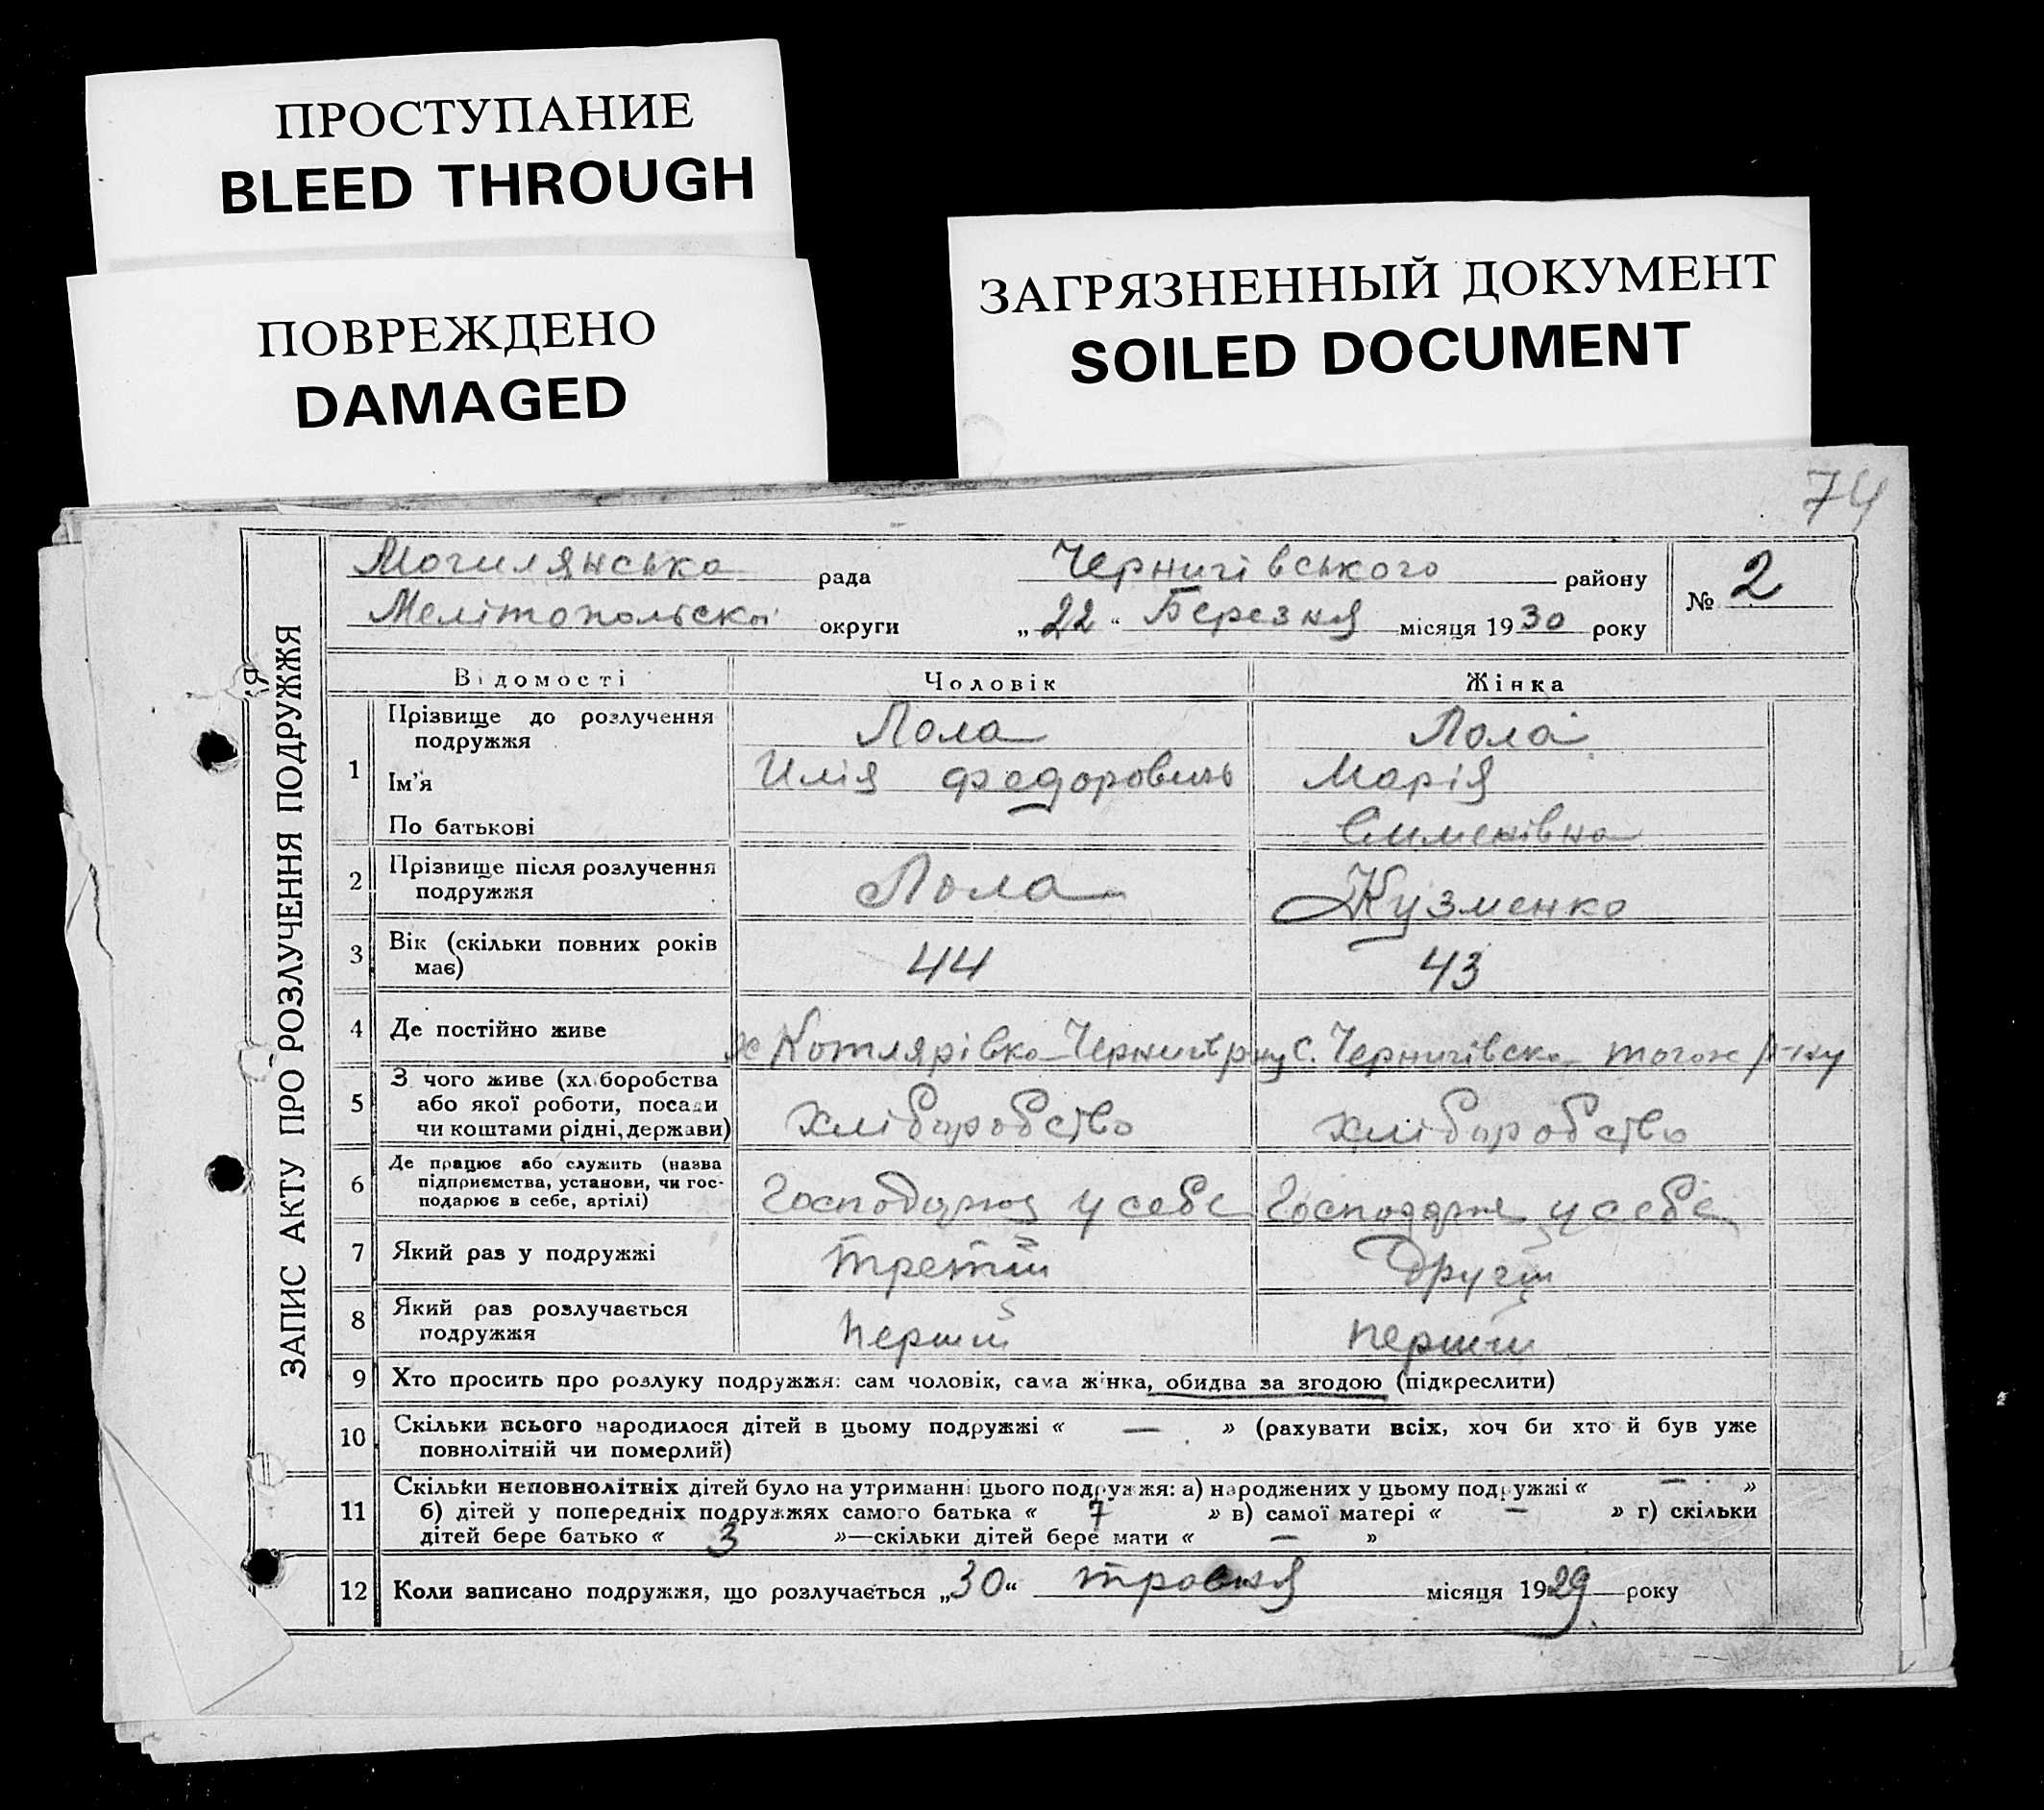 ПРОСТУПАНИЕ
BLEED THROUGH
ПОВРЕЖДЕНО
DAMAGED
ЗАГРЯЗНЕННЫЙ ДОКУМЕНТ
SOILED DOCUMENT
74
ЗАПИС АКТУ ПРО РОЗЛУЧЕННЯ ПОДРУЖЖЯ
Могилянська рада Чернигівського району
№ 2
Мелітопольскої округи „22“ Березня місяця 1930 року
Відомості Чоловік Жінка
1 Прізвище до розлучення подружжя Лола Лола
Ім’я Илія Федоровичь Марія
По батькові Сименівна
2 Прізвище після розлучення
подружжя Лола Кузменко
3 Вік (скільки повних років
має) 44 43
4 Де постійно живе х Котлярівка Чернигів р-ну с. Чернигівска тогож р-ну
5 З чого живе (хліборобства
або якої роботи, посади
чи коштами рідні, держави) хліборобство хліборобство
6 Де працює або служить (назва
підприємства, установи, чи гос-
подарює в себе, артілі) Господарює у себе Господарює у себе
7 Який раз у подружжі третій Другий
8 Який раз розлучається
подружжя перший перший
9 Хто просить про розлуку подружжя: сам чоловік, сама жінка, обидва за згодою (підкреслити)
10 Скільки всього народилося дітей в цьому подружжі « — » (рахувати всіх, хоч би хто й був уже
повнолітній чи померлий)
11 Скільки неповнолітніх дітей було на утриманні цього подружжя: а) народжених у цьому подружжі « — »
б) дітей у попередніх подружжях самого батька « 7 » в) самої матері « — » г) скільки
дітей бере батько « 3 »—скільки дітей бере мати « — »
12 Коли записано подружжя, що розлучається „30“ травня місяця 1929 року